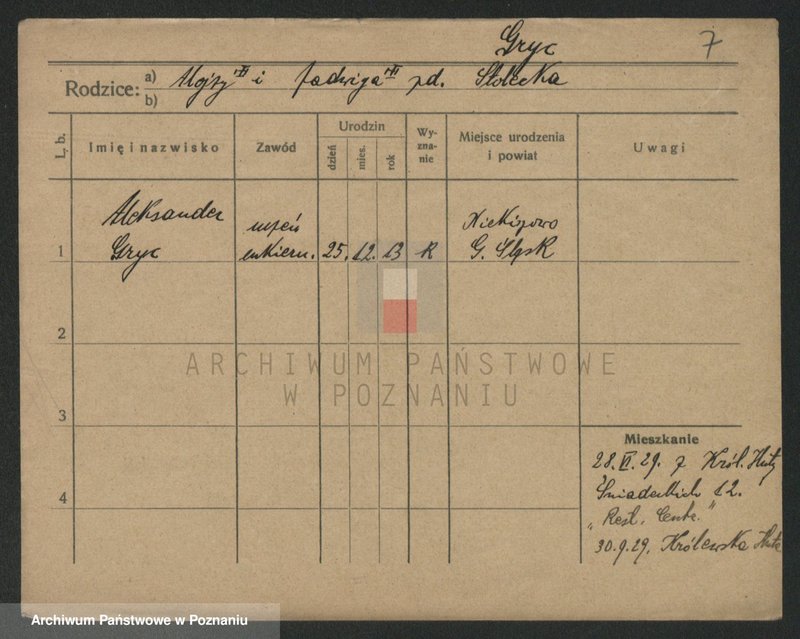 Gryc 7
Rodzice: a) Alojzy i Jadwiga zd. Stolecka
b)
L. b. Imię i nazwisko Zawód Urodzin dzień mies. rok Wy-zna-nie Miejsce urodzenia i powiat Uwagi
Aleksander uczeń Nikiszowo
1 Gryc cukiern. 25. 12. 13 R G. Śląsk
2
ARCHIWUM PAŃSTWOWE
W POZNANIU
3
Mieszkanie
28. VI. 29. z Król. Huty
4 Śniadeckich 12.
"Rest. Centr."
30.9.29. Królewska Huta
Archiwum Państwowe w Poznaniu